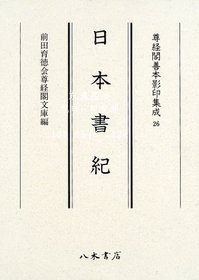 尊経閣善本影印集成
26
日本書紀
前田育徳会尊経閣文庫編
八木書店